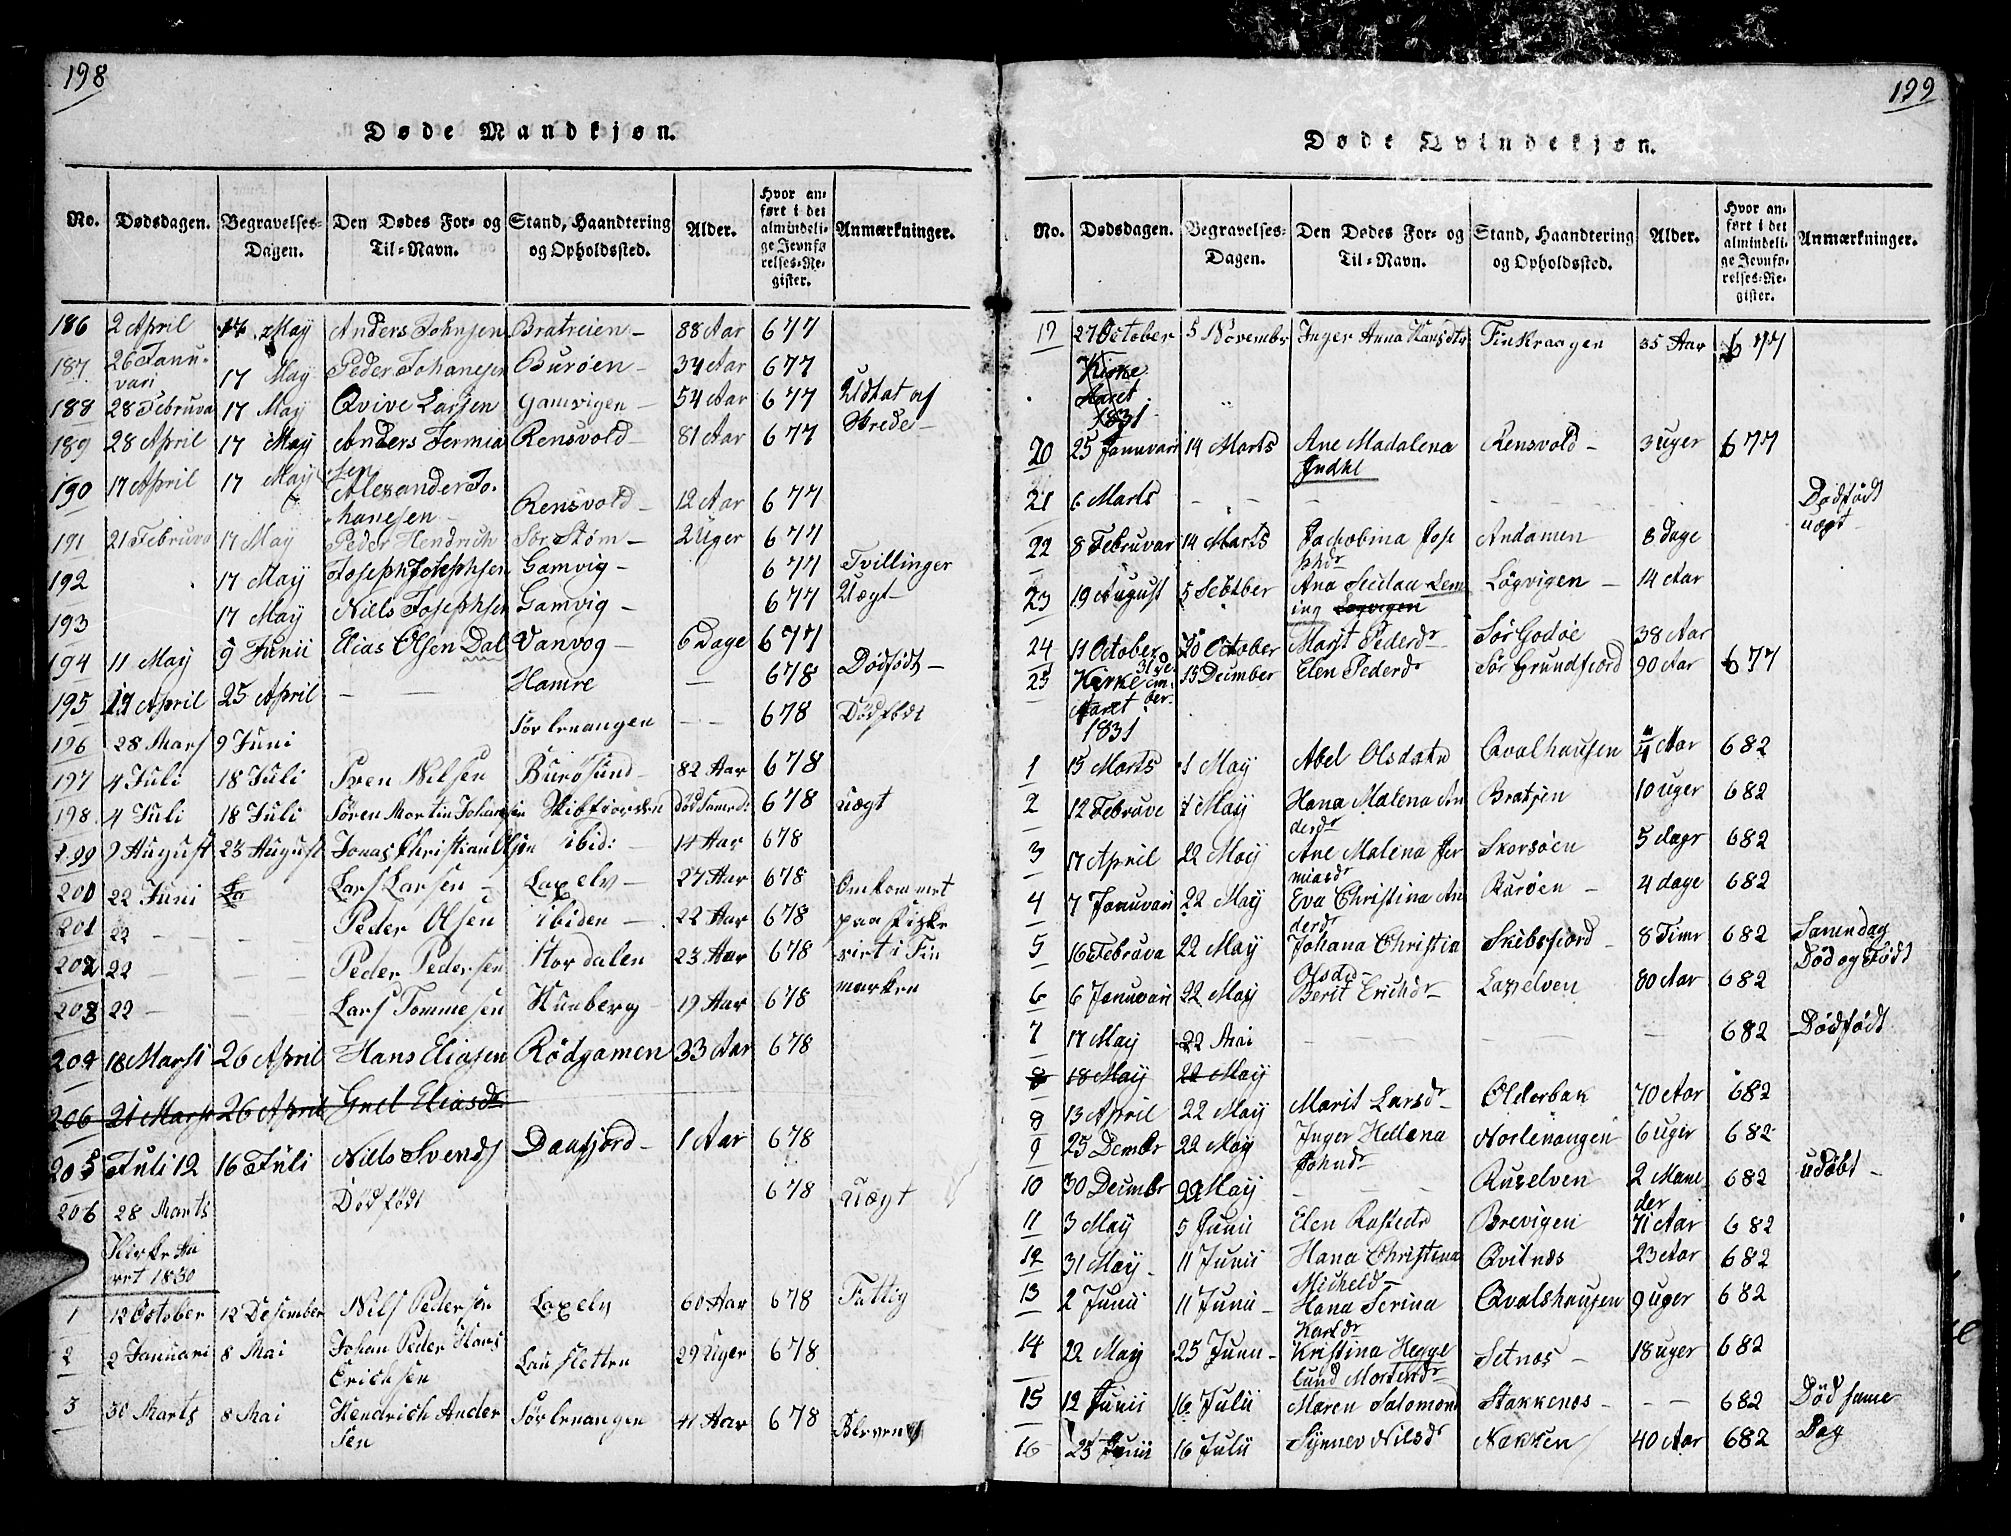 198
Døde Mandkjøn.
No. Dødsdagen. Begravelses-Dagen. Den Dødes For- og Til-Navn. Stand, Haandtering og Opholdssted. Alder. Hvor anført i det almindelige Jevnførelses-Register. Anmærkninger.
186 2 April 17 May Anders Johnsen Bratreien 88 Aar 677
187 26 Januvari 17 May Peder Johanesen Burøen 34 Aar 677
188 28 Februva 17 May Qvive Larsen Gamvigen 54 Aar 677 Udtat af
189 28 April 17 May Anders Jermiasen Rensvold 81 Aar 677
190 17 April 17 May Alexander Johanesen Rensvold 12 Aar 677
191 21 Februva 17 May Peder Hendrich Sør Strøm 2 Uger 677
192 17 May Joseph Josephsen Gamvig 677 Tvillinger
193 17 May Niels Josephsen Gamvig 677 Uægt
194 11 May 9 Junii Elias Olsen Dal Vanvog 6 Dage 677
195 19 April 25 April — Hamre — 678 Dødfødt
196 28 Mars 9 Juni Sørlenangen — 678 Dødfødt
197 4 Juli 18 Juli Sven Nilsen Burøsund 82 Aar 678
198 4 Juli 18 Juli Søren Martin Johansen Skibfiorden 678 uægt
199 9 August 23 August Jonas Christian Olsen ibid: 14 Aar 678
200 22 Juni Lars Larsen Laxelv 27 Aar 678 Omkommet
201 22 — — Peder Olsen ibiden 22 Aar 678 paa fiske
202 22 — — Peder Pedersen Stordalen 23 Aar 678 riet i Fin
203 22 — — Lars Tommesen Kunberg 19 Aar 678 marken
204 18 Marsi 26 April Hans Eliasen Rødgamen 33 Aar 678
206 21 Mars 26 April Gret Eliasdr
205 Juli 12 16 Juli Nills Svends Daafjord 1 Aar 678
206 28 Marts Dødfødt 678 Uægt
Kirke Aa
ret 1830
1 12 October 12 Desember Nils Pedersen Laxelv 60 Aar 678 Fattig
2 2 Januari 8 Mai Johan Peder Hans Erichsen Lausletten 29 Uger 678
3 30 Marts 8 Mai Hendrich Andersen Sørlenangen 41 Aar 678
199
Døde Qvindekjøn.
No. Dødsdagen. Begravelses-Dagen. Den Dødes For- og Til-Navn. Stand, Haandtering og Opholdssted. Alder. Hvor anført i det almindelige Jevnførelses-Register. Anmærkninger.
19 27 October 5 Novembr Inger Anna Hansdtr Finkraagen 35 Aar 677
Kirke
Aaret
1831
20 25 Januvari 14 Marts Ane Madalena Indhl Rensvold 3 uger 677
21 6 Marts — — — — Dødfødt uægt
22 8 Februvar 14 Marts Jachobina Josephdr Andamen 8 Dage
23 19 August 5 Sebtber Ana Secilaa Lening Løgvigen 14 Aar
24 11 October 20 October Marit Pederdr Sør Godøe 38 Aar
25 31 December 15 Decmber Elen Pederdr Sør Grundfiord 90 Aar 677
Kirke
Aaret
1831
1 15 Marts 1 May Abel Olsdatr Qvalhausen Aar 682
2 12 Februve 1 May Hana Malena Anderdr Bratsen 10 uger 682
3 17 April 22 May Ane Malena Jermiasdr Skorsøen 5 dage 682
4 7 Januvari 22 May Eva Christina Anderdr Burøen 4 dage 682
5 16 Februva 22 May Johana Christia Olsdr Skibsfiord 8 Timr 682 Samme dag Død og Født
6 6 Januvari 22 May Berit Erichdr Laxelven 80 Aar 682
7 17 May 22 Mai — — — 682 Dødfødt
8 18 May 22 May
8 13 April 22 May Marit Larsdr Olderbak 70 Aar 682
9 25 Decmbr 22 May Inger Hellena Johndr Norlenangen 6 uger 682
10 30 Decmbr 22 May — Ruselven 2 Maneder 682 udøbt
11 3 May 5 Junii Elen Rastedr Brevigen 71 Aar 682
12 31 May 11 Junii Hana Christina Micheldr Qvitnæs 23 Aar 682
13 2 Junii 11 Junii Hana Serina Karldr Qvalshausen 9 uger 682
14 22 May 25 Junii Kristina Heggelund Mortendr Setnæs 18 uger 682
15 12 Junii 16 Julii Maren Salomond Stakkenæs — 682 Død same Dag
16 25 Junii 16 Julii Synnev Nilsdr Nakken 40 Aar 682